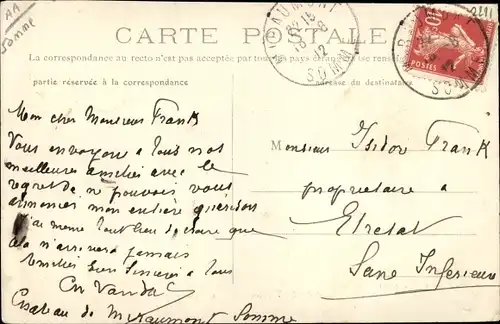 AA
Somme
2211
CARTE POSTALE
La correspondance au recto n'est pas acceptée par tous pays étrangers
partie réservée à la correspondance
adresse du destinataire
MIRAUMONT
SOMME
8
12
SOMME
10
POSTES
Mon cher Monsieur Frank
Vous envoyons à tous nos
meilleures amitiés avec le
regret de ne pouvoir vous
annoncer mon entière guérison
j'ai meme tout lieu de croire que
cela n'arrivera jamais
Amitiés bien sincères à tous
Château de Miraumont Somme
Monsieur Isidor Frank
propriétaire à
Etretat
Seine Inférieure